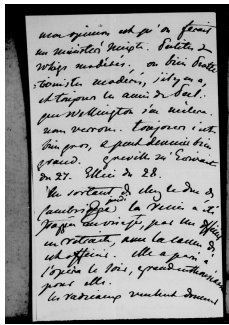 mon opinion est qu'on ferait
un ministère mixte. Peelites ou
Whigs modérés. ou bien protec-
tionnistes modérés, s'il y en a,
et toujours les amis de Peel.
que Wellington s'en mêlera
nous verrons. toujours c'est
bien gros, &
grand. Greville et Ecosse
du 27. Ellice du 28.
En sortant de chez le duc de
Cambridge jeudi la reine a été
frappée au visage, par un officier
en retraite, avec la canne de
cet officier. elle a paru à
l'opéra le soir, grand enthousiasme
pour elle.
les radicaux veulent donner